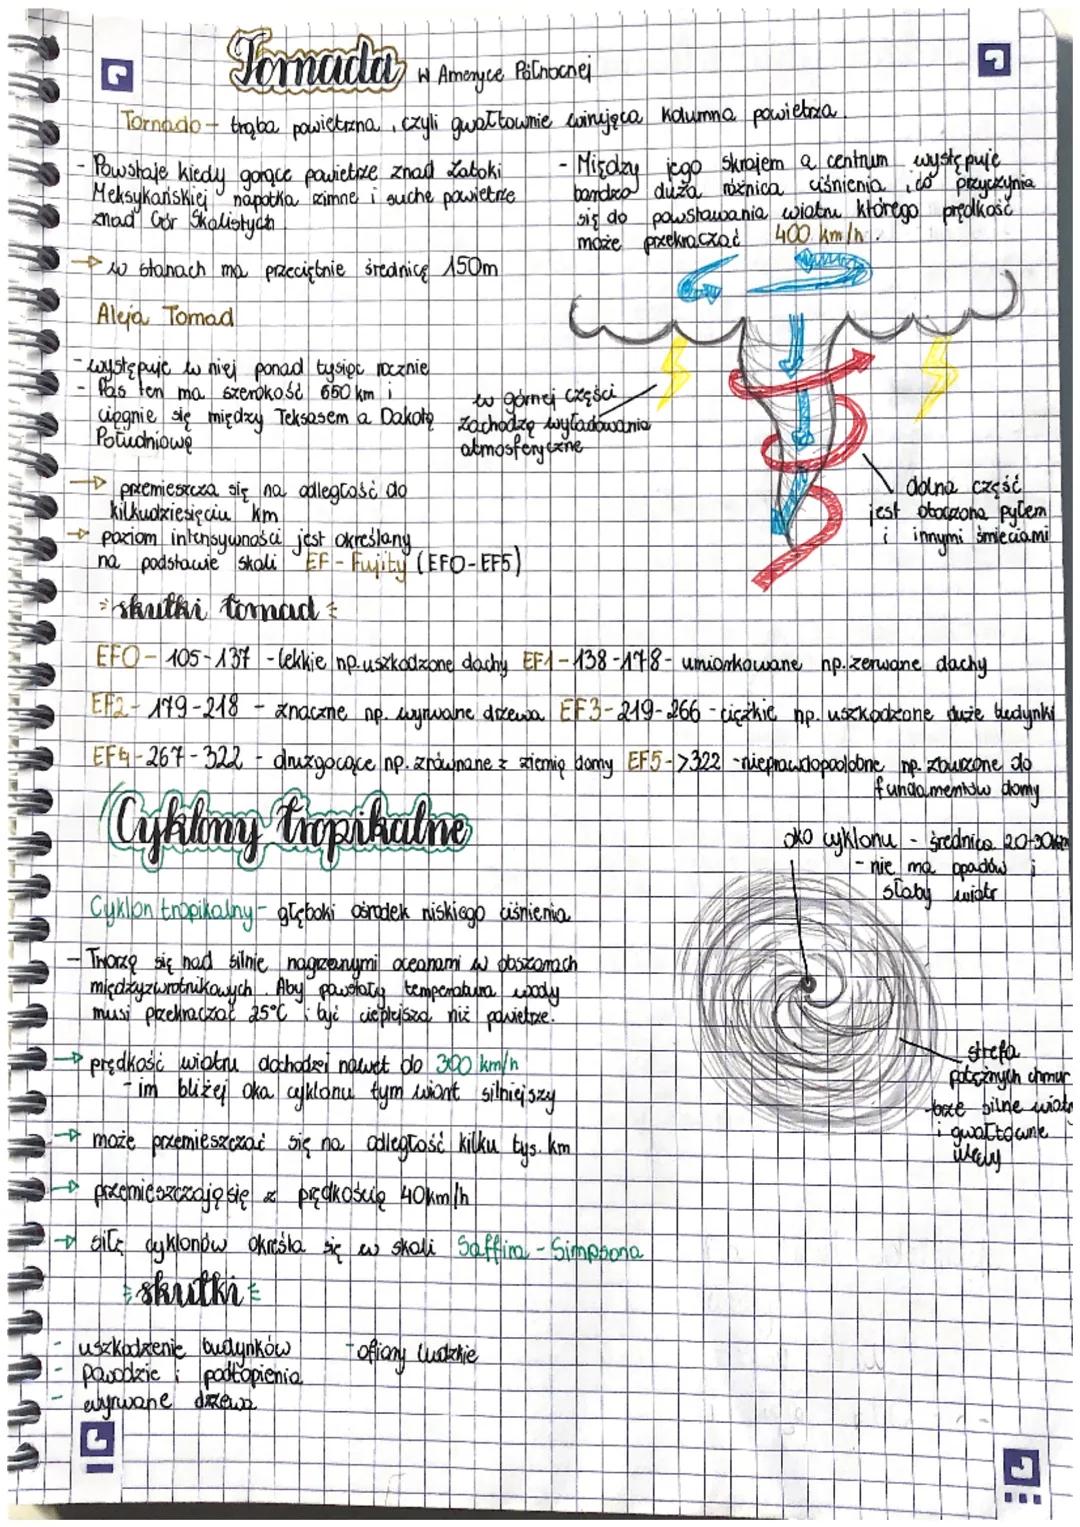 Tornada w Ameryce Północnej
Tornado - trąba powietrzna, czyli gwałtownie wirująca kolumna powietrza.
- Powstaje kiedy gorące powietrze znad Zatoki
Meksykańskiej napotka zimne i suche powietrze
znad Gór Skalistych.
→ w stanach ma przeciętnie średnicę 150m
- Między jego skrajem a centrum występuje
bardzo duża różnica ciśnienia, co przyczynia
się do powstawania wiatru którego prędkość
może przekraczać 400 km/h.
Aleja Tornad
- występuje w niej ponad tysiąc rocznie
- Pas ten ma szerokość 650 km i
ciągnie się między Teksasem a Dakotą
Południową
w górnej części
zachodzą wyładowania
atmosferyczne
→ przemieszcza się na odległość do
kilkudziesięciu km
→ poziom intensywności jest określany
na podstawie skali EF - Fujity (EF0-EF5)
dolna część
jest otoczona pyłem
i innymi śmieciami
skutki tornad
EF0 - 105-137 - lekkie np. uszkodzone dachy EF1 - 138-178 - umiarkowane np. zerwane dachy
EF2 - 179-218 - znaczne np. wyrwane drzewa EF3 - 219-266 - ciężkie np. uszkodzone duże budynki
EF4 - 267-322 - druzgocące np. zrównane z ziemią domy EF5 - >322 - nieprawdopodobne np. zburzone do
fundamentów domy
Cyklony tropikalne
oko cyklonu - średnica 20-30km
- nie ma opadów i
słaby wiatr
Cyklon tropikalny - głęboki ośrodek niskiego ciśnienia
- Tworzą się nad silnie nagrzanymi oceanami w obszarach
międzyzwrotnikowych. Aby powstały temperatura wody
musi przekraczać 25°C i być cieplejsza niż powietrze.
→ prędkość wiatru dochodzi nawet do 300 km/h
- im bliżej oka cyklonu tym wiatr silniejszy
strefa
potężnych chmur
- silne wiatr
i gwałtowne
ulewy
→ może przemieszczać się na odległość kilku tys. km
→ przemieszczają się z prędkością 40km/h
→ siłę cyklonów określa się w skali Saffira - Simpsona
skutki
- uszkodzenie budynków
- powodzie i podtopienia
- wyrwane drzewa
- ofiary ludzkie